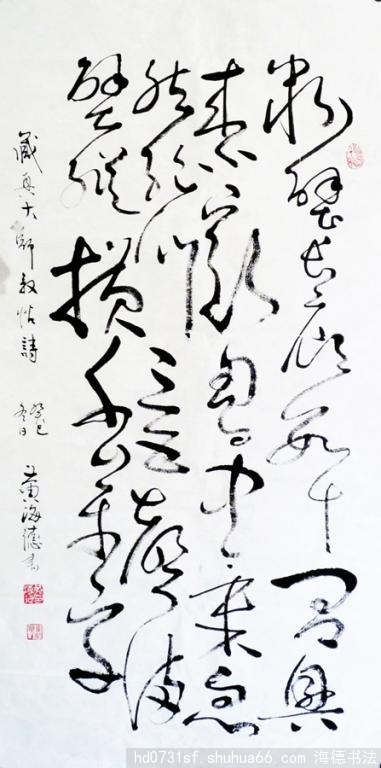 粉壁長廊數十間興
來小豁胸中氣忽
然絕叫三五聲滿
壁縱橫千萬字
藏真大師敘帖詩
癸巳冬日
黄海德書
hd0731sf.shuhua66.com 海德书法